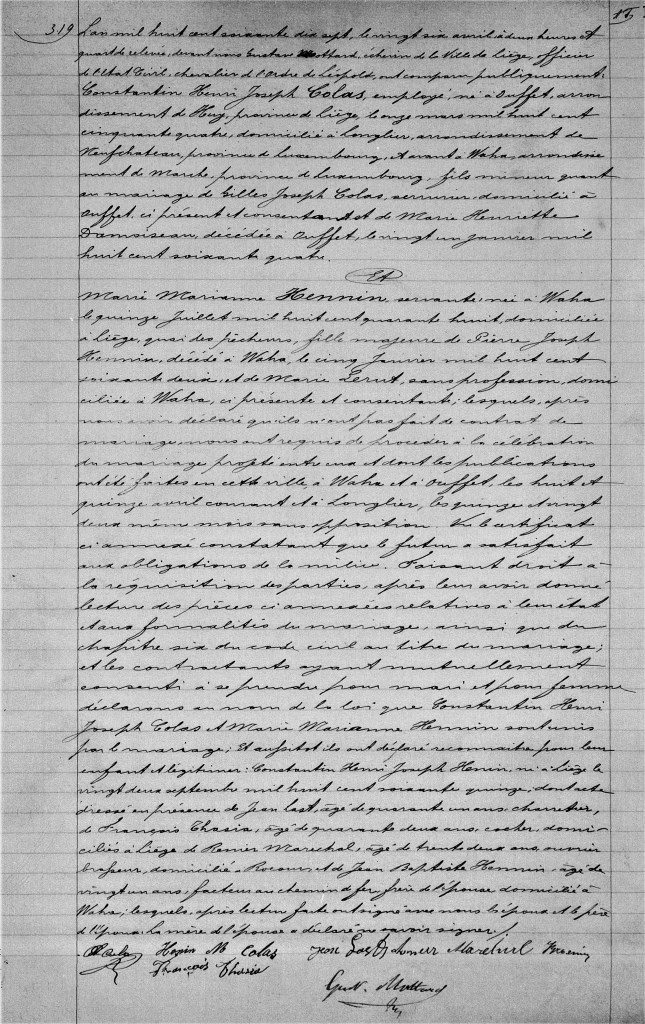 319
L'an mil huit cent soixante dix sept, le vingt six avril à deux heures et
quart de relevée, devant nous Gustave Mottard, échevin de la Ville de Liège, officier
de l'Etat Civil, chevalier de l'Ordre de Léopold, ont comparu publiquement:
Constantin Henri Joseph Colas, employé, né à Ouffet, arron
dissement de Huy, province de Liège, le onze mars mil huit cent
cinquante quatre, domicilié à Longlier, arrondissement de
Neufchateau, province de Luxembourg, et avant à Waha, arrondisse
ment de Marche, province de Luxembourg, fils mineur quant
au mariage de Gilles Joseph Colas, serrurier, domicilié à
Ouffet, ci présent et consentant et de Marie Henriette
Damoiseau, décédée à Ouffet, le vingt un janvier mil
huit cent soixante quatre.
Et
Marie Marianne Hennin, servante, née à Waha
le quinze Juillet mil huit cent quarante huit, domiciliée
à Liège, quai des pêcheurs, fille majeure de Pierre Joseph
Hennin, décédé à Waha, le cinq Janvier mil huit cent
soixante deux, et de Marie Lerut, sans profession, domi
ciliée à Waha, ci présente et consentante; lesquels, après
nous avoir déclaré qu'ils n'ont pas fait de contrat de
mariage, nous ont requis de procéder à la célébration
du mariage projeté entre eux et dont les publications
ont été faites en cette ville, à Waha et à Ouffet, les huit et
quinze avril courant et à Longlier, les quinze et vingt
deux même mois sans opposition. Vu le certificat
ci annexé constatant que le futur a satisfait
aux obligations de la milice. Faisant droit à
la réquisition des parties, après leur avoir donné
lecture des pièces ci annexées relatives à leur état
et aux formalités du mariage, ainsi que du
chapitre six du code civil au titre du mariage;
et les contractants ayant mutuellement
consenti à se prendre pour mari et pour femme
déclarons au nom de la loi que Constantin Henri
Joseph Colas et Marie Marianne Hennin sont unis
par le mariage; Et aussitot ils ont déclaré reconnaitre pour leur
enfant et légitimer: Constantin Henri Joseph Henin, né à Liège le
vingt deux septembre mil huit cent soixante quinze; dont acte
dressé en présence de Jean Last, âgé de quarante un ans, charretier,
de François Thasia, âgé de quarante deux ans, cocher, domi-
ciliés à Liège de Renier Marechal, âgé de trente deux ans, ouvrier
brasseur, domicilié à Rocour, et de Jean Baptiste Hennin, âgé de
vingt un ans, facteur au chemin de fer, frère de l'épouse domicilié à
Waha; lesquels, après lecture faite ont signé avec nous les époux et le père
de l'époux; la mère de l'épouse a déclaré ne savoir signer./.
Colas Henin M Colas Jean Last Maréchal Hennin
François Thasia
Gust. Mottard